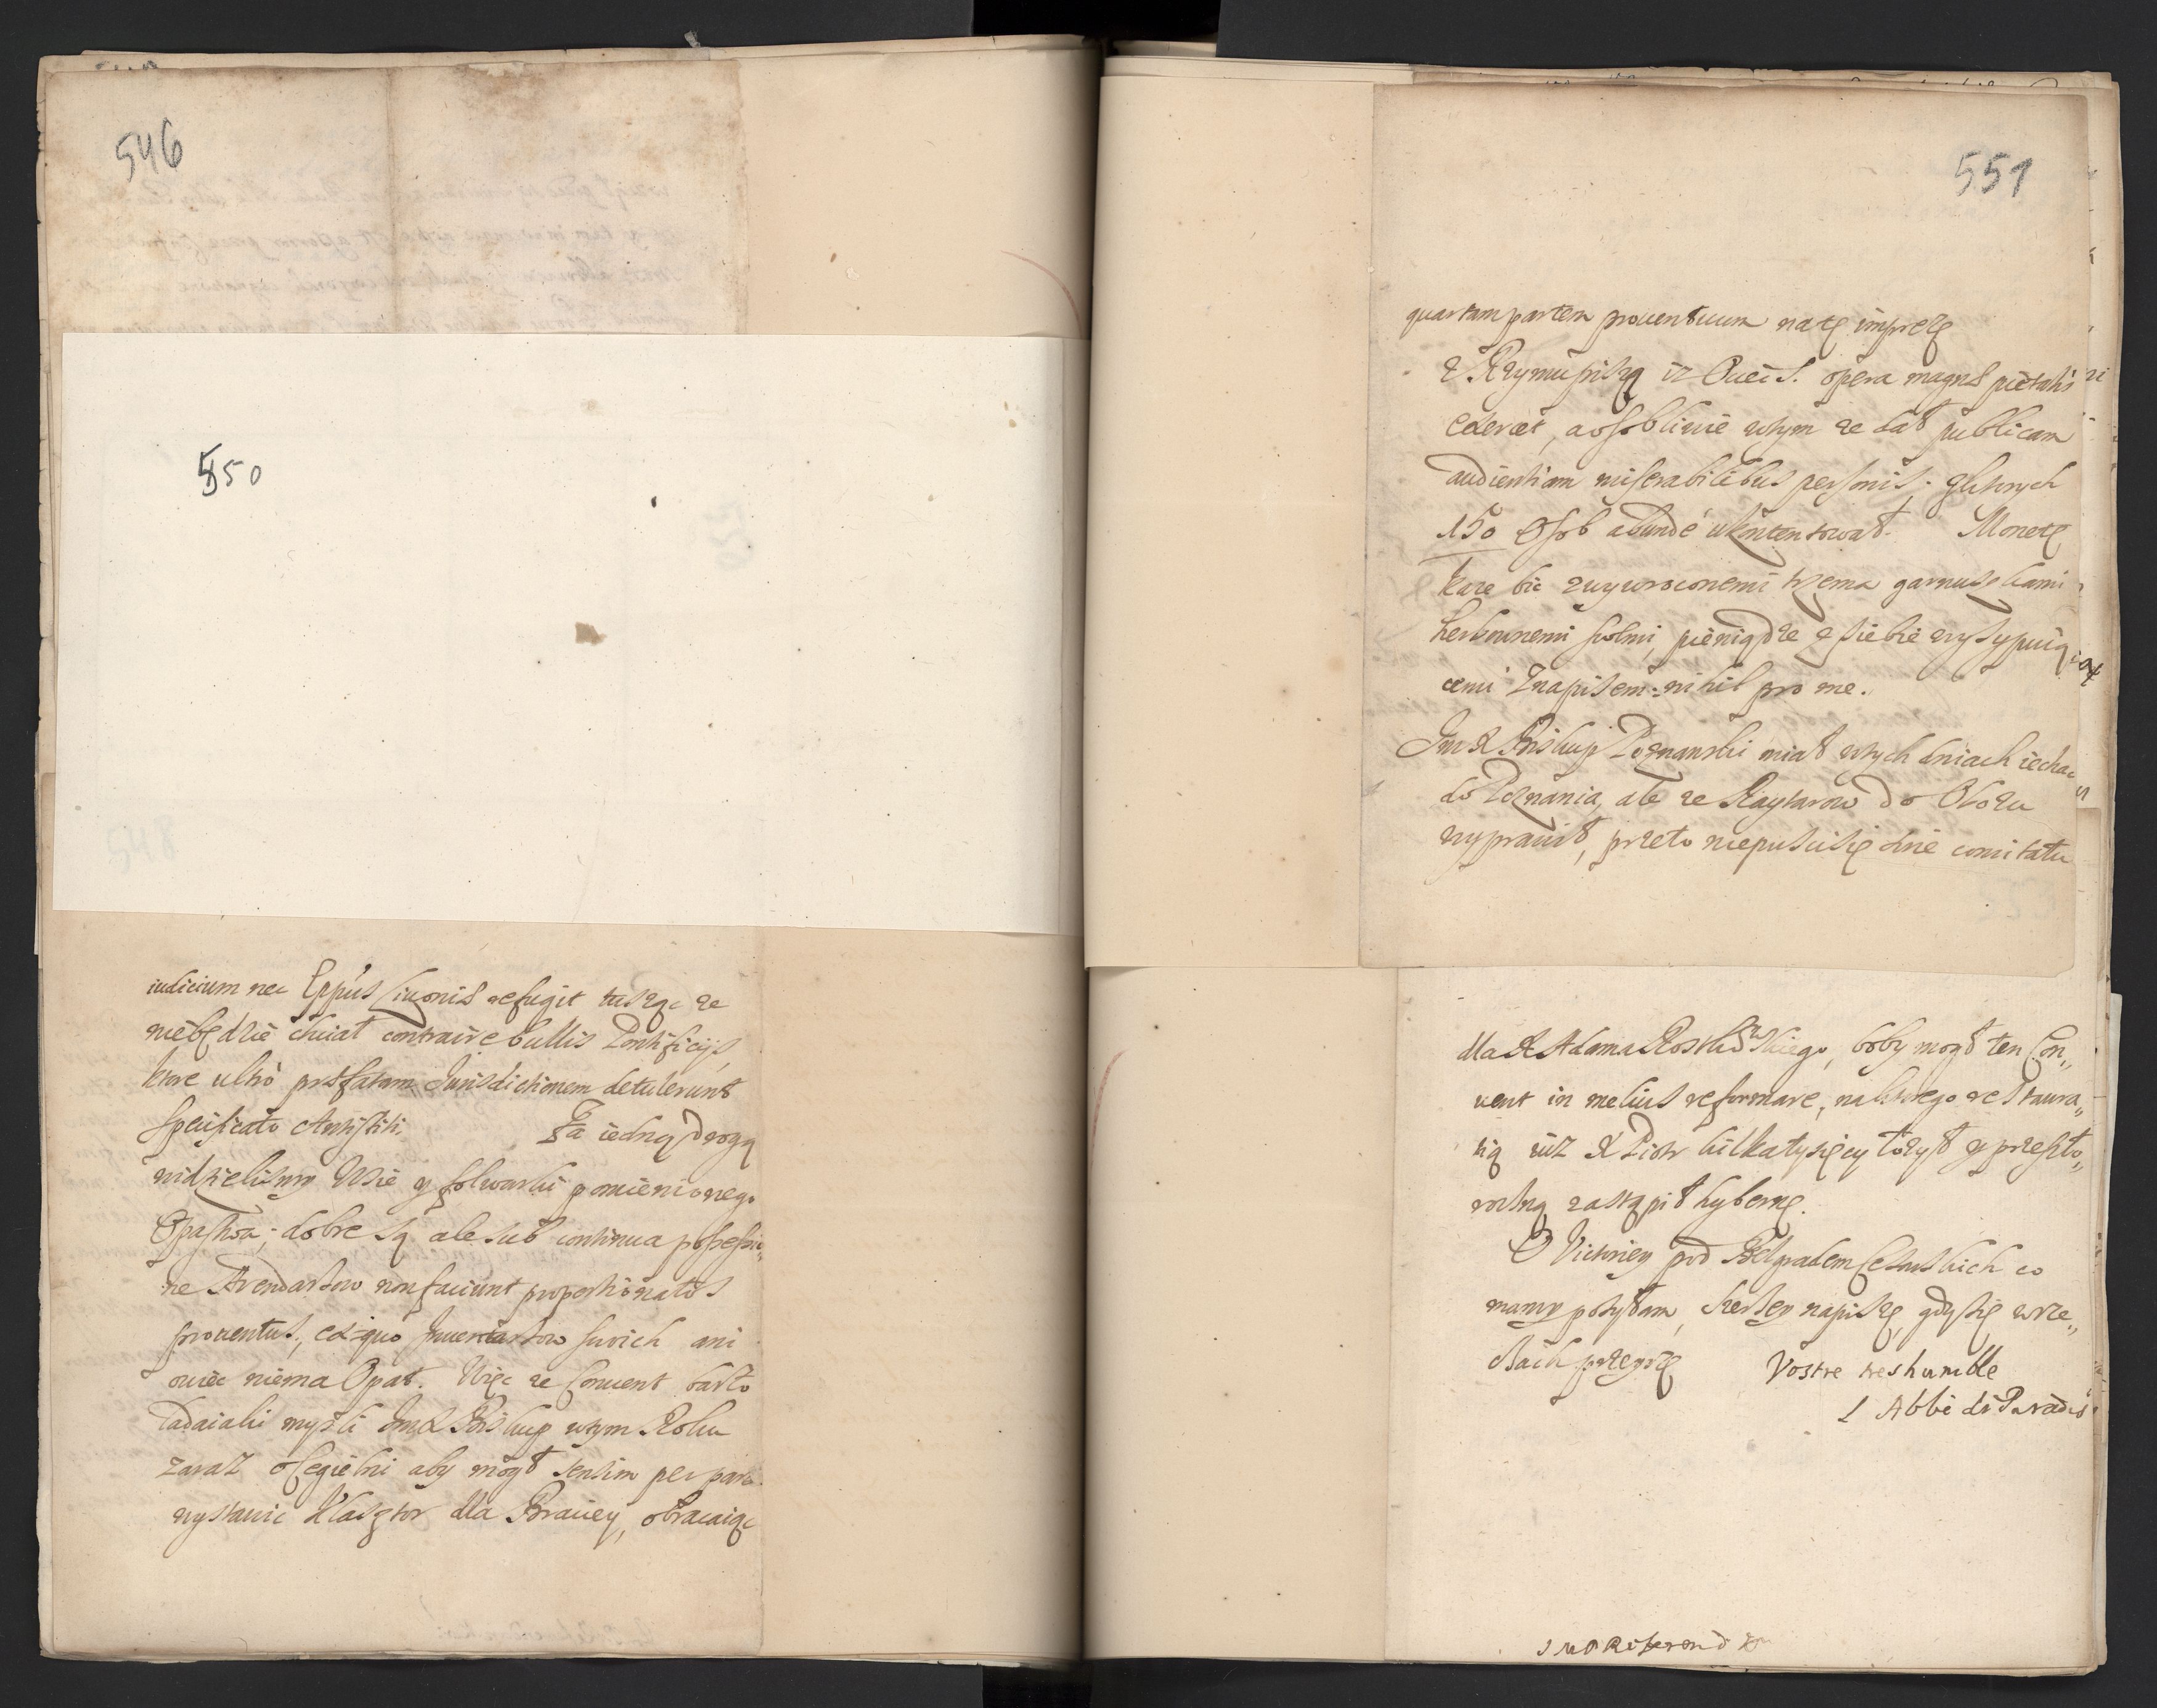 546
550
iudicium nec Eppus Livonis refugit tusząc ze
niebędzie chciał contraire bullis Pontificijs,
ktore ultro præfatam Jurisdictionem detulerunt
specificato Antistiti. Za iedną drogą
widzielismy Wsie y folwarki pomienionego
Opastwa; dobre są ale sub continua possessio„
ne Arendarzow non faciunt proportionatos
prouentus, ex quo Inuentarzow swoich ani
owiec niema Opat. Więc ze Conuent barzo
ladaiaki mysli Im X Biskup wtym Roku
zaraz o Cegielni aby mogł sensim per par
wystawic Klasztor dla Braciey, obracaiąc
551
quartam partem prouentuum na tę imprezę
Z Rzymu piszą iz Ociec S. opera magnæ pietatis
exercet, a osobliwie wtym ze dał publicam
audientiam miserabilibus personis; z ktorych
150 Osob abunde ukontentował. Monetę
kaze bic z wywroconemi trzema garnuszkami
herbownemi swemi, pieniądze z siebie wysypuią„
cemi Z napisem: nihil pro me.
Im X Biskup Poznanski miał wtych dniach iechac
do Poznania, ale ze Raytarow do Obozu
wyprawił, przeto niepusci się sine comitatu
dla X Adama skiego, boby mogł ten Con„
uent in melius reformare, na ktorego restaura„
tią iuz X Piotr kilka tysięcy łozył y przeszło„
roczną zastąpił hybernę.
O Victoriey pod Belgradem Cesarskich co
mamy posyłam, szerzey napiszę, gdy się w rze„
czach przeyrzę Vostre tres humble
L Abbé de Paradis
J M P Referend